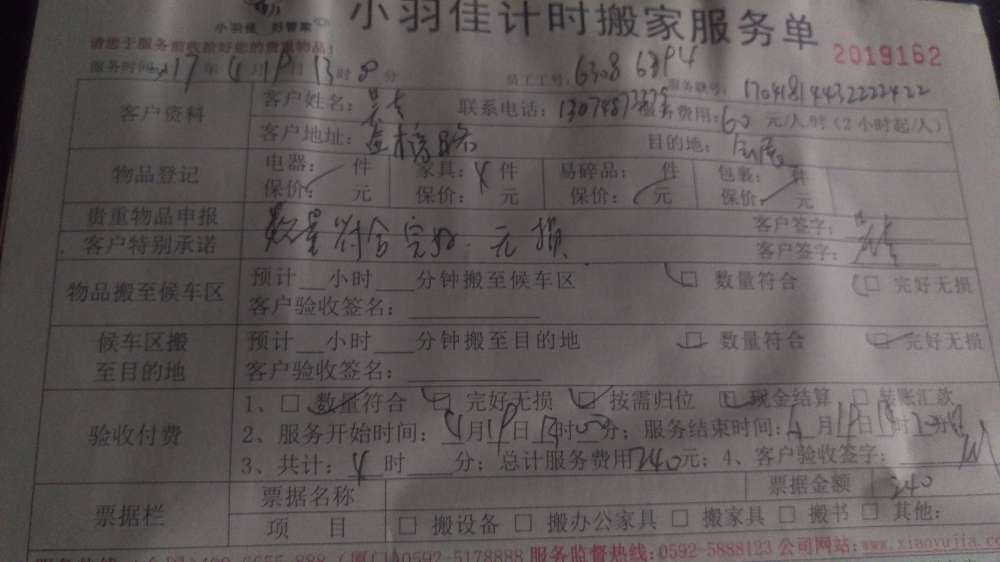 小羽佳 好管家
小羽佳计时搬家服务单
2019162
请您于服务前收拾好您的贵重物品!
服务时间: 17年4月19日13时 分 员工工号: 6308 服务联号:
客户资料 客户姓名: 联系电话: 服务费用: 60 元/人/时 (2小时起/人)
客户地址: 目的地:
物品登记 电器: 件 家具: 4 件 易碎品: 件 包裹: 件
保价: 元 保价: 元 保价: 元 保价: 元
贵重物品申报 客户签字:
客户特别承诺 数量符合 完好无损 客户签字:
物品搬至候车区 预计__小时___分钟搬至候车区 □ 数量符合 □ 完好无损
客户验收签名:
候车区搬至目的地 预计__小时___分钟搬至目的地 □ 数量符合 □ 完好无损
客户验收签名:
验收付费 1、□ 数量符合 □ 完好无损 □ 按需归位 □ 现金结算 □ 转账汇款
2、服务开始时间: 4月19日13时00分; 服务结束时间: 4月19日 时 分
3、共计: 4 时___分; 总计服务费用240元; 4、客户验收签字:
票据栏 票据名称 票据金额 240
项 目 □ 搬设备 □ 搬办公家具 □ 搬家具 □ 搬书 □ 其他:
0592-5178888 服务监督热线:0592-5888123 公司网站:www.xiaoyujia.com